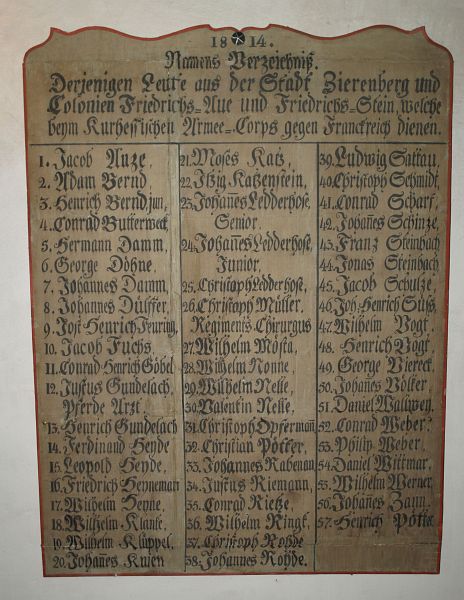 1814.
Namens Verzeichniß.
Derjenigen Leute aus der Stadt Zierenberg und
Colonien Friedrichs=Aue und Friedrichs=Stein, welche
beym Kurhessischen Armee=Corps gegen Franckreich dienen.
1. Jacob Anze,
2. Adam Bernd,
3. Henrich Bernd jun,
4. Conrad Butterweck,
5. Hermann Damm,
6. George Döhne,
7. Johannes Damm,
8. Johannes Dülffer,
9. Jost Henrich Feuring,
10. Jacob Fuchs,
11. Conrad Henrich Göbel
12. Justus Gundelach,
Pferde Arzt,
13. Henrich Gundelach
14. Ferdinand Heyde
15. Leopold Heyde,
16. Friedrich Heyneman
17. Wilhelm Heyne,
18. Wilhelm Klanke,
19. Wilhelm Klüppel,
20. Johañes Knien
21. Moses Katz,
22. Itzig Katzenstein,
23. Johañes Ledderhose,
Senior,
24. Johañes Ledderhose,
Junior,
25. Christoph Ledderhose,
26. Christoph Müller,
Regiments Chirurgus
27. Wilhelm Mosta,
28. Wilhelm Nonne,
29. Wilhelm Nelle,
30. Valentin Nelle,
31. Christoph Opfermañ,
32. Christian Pötter,
33. Johannes Rabenau
34. Justus Riemann,
35. Conrad Rietze,
36. Wilhelm Ringk,
37. Christoph Rohde
38. Johannes Rohde.
39. Ludwig Sattau,
40. Christoph Schmidt,
41. Conrad Scharf,
42. Johañes Schinze,
43. Franz Steinbach
44. Jonas Steinbach
45. Jacob Schulze,
46. Joh. Henrich Süß,
47. Wilhelm Vogt,
48. Henrich Vogt,
49. George Viereck,
50. Johañes Völker,
51. Daniel Wallwey,
52. Conrad Weber,
53. Philip Weber,
54. Daniel Wittmar,
55. Wilhelm Werner,
56. Johañes Zann,
57. Henrich Pötter